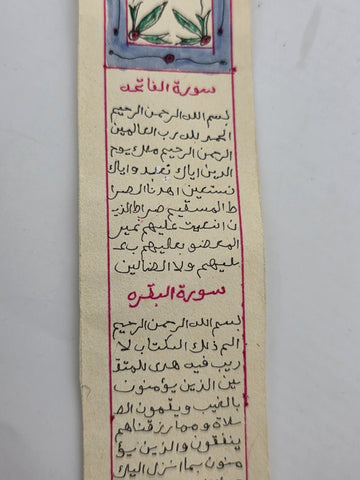 سورة الفاتحه
بسم الله الرحمن الرحيم
الحمد لله رب العالمين
الرحمن الرحيم ملك يوم
الدين اياك نعبد و اياك
نستعين اهدنا الصرا
ط المستقيم صراط الذي
ن انعمت عليهم غير
المغضو بعليهم و
عليهم ولا الضالين
سورة البقره
بسم الله الرحمن الرحيم
الم ذلك الكتاب لا
ريب فيه هدى للمتق
ين الذين يؤمنون
بالغيب و يقمون الص
سلاة و مما رزقناهم
ينفقون والذين يؤ
منون بما انزل اليك